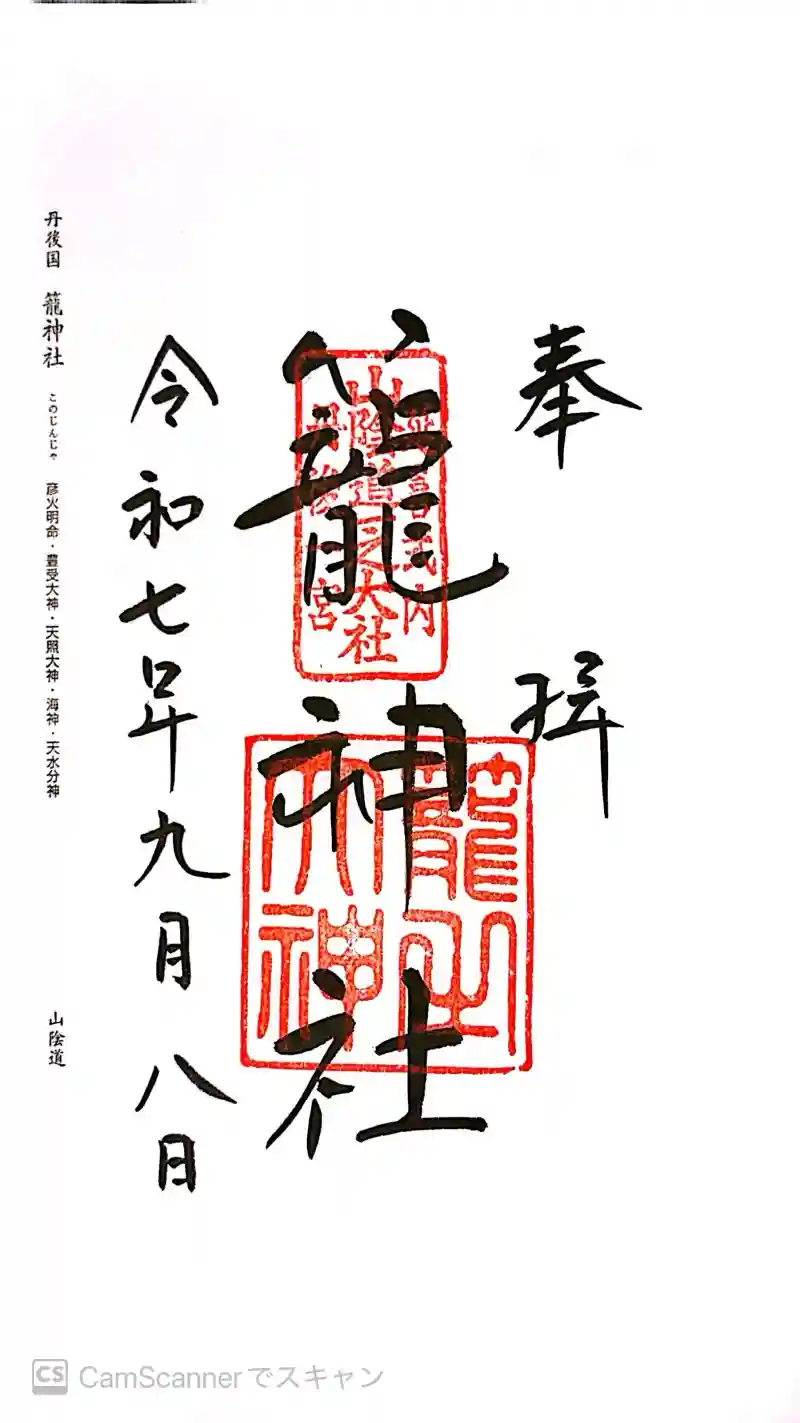 奉拝
籠神社
延喜式内
山陰道之大社
丹後一宮
籠之大神
令和七年九月八日
丹後国 籠神社 このじんじゃ 彦火明命・豊受大神・天照大神・海神・天水分神 山陰道
CS CamScannerでスキャン